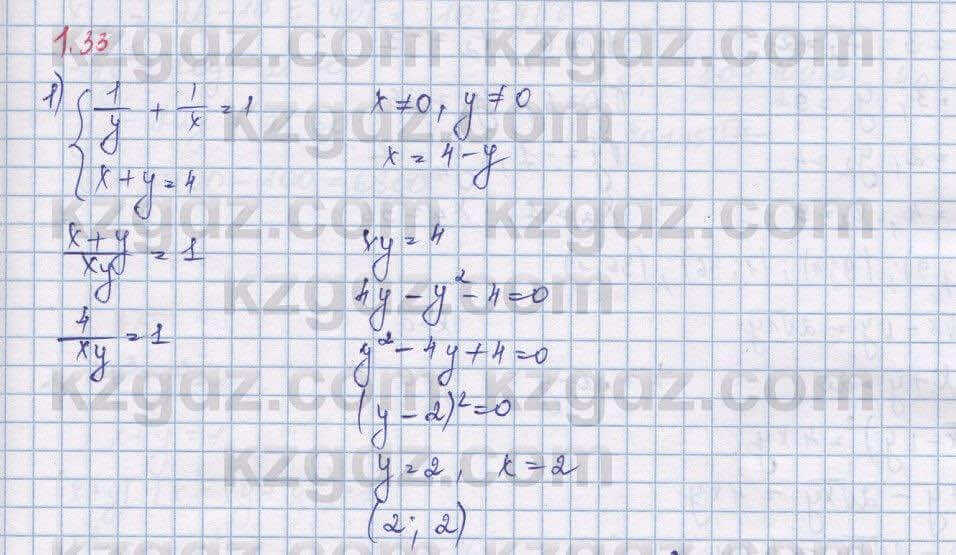 1.33
1) { 1/y + 1/x = 1
x + y = 4
x ≠ 0, y ≠ 0
x = 4 - y
(x + y)/(xy) = 1
4/(xy) = 1
xy = 4
4y - y² - 4 = 0
y² - 4y + 4 = 0
(y - 2)² = 0
y = 2, x = 2
(2; 2)
kzgdz.com kzgdz.com
kzgdz.com
kzgdz.com kzgdz.com
kzgdz.com
kzgdz.com kzgdz.com
kzgdz.com